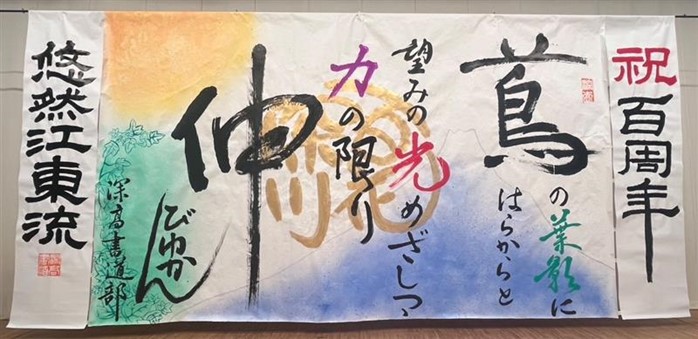 祝百周年
蔦の葉影に
はらからと
望みの光めざしつつ
力の限り
伸びゆかん
深高書道部
悠然江東流